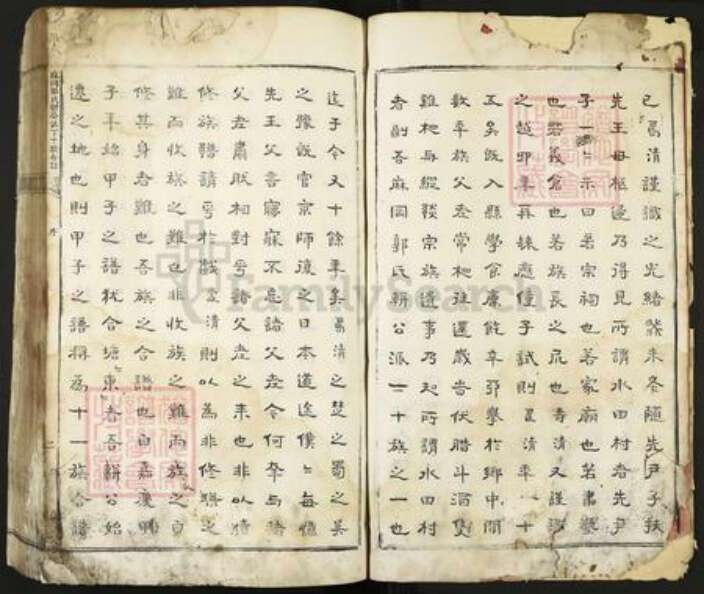 已昌清謹識之光緒癸未冬隨先尹子扶
先王母柩邊乃得見所謂水田村者先尹
子一一示曰若宗祠也若家廟也若書塾
也若義倉也若族長之
之越卯年再錄應童子試則昌清年二十
五矣既入縣學食廩餼辛卯舉於鄉中間
數年族父老常相往還歲告伏臘斗酒隻
雞相與縱談宗族遺事乃知所謂水田村
者則吾麻岡郭氏輧公派二十族之一也
迄于今又十餘年矣昌清之楚之蜀之吳
之豫既官京師復之日本道途僕僕每憶
先王父書寤寐不忘諸父老令何年與諸
父老肅然相對乎諸父老之來也非以續
修族譜請乎於戲昌清則以為非修譜之
難而收族之難也非收族之難而族之自
修其身者難也吾族之合譜也自嘉慶
子年始甲子之譜犹合塘東者吾輧公始
遷之地也則甲子之譜稱為十一族合譜
FamilySearch